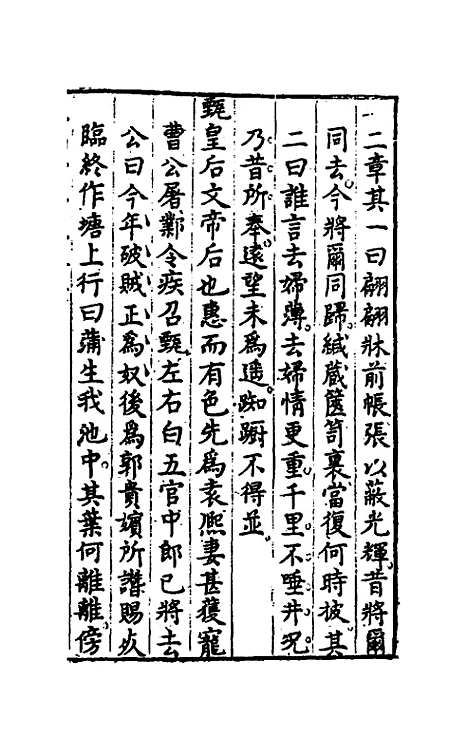 二章其一曰翩翩牀前帳張以蔽光輝昔將爾
同去今將爾同歸緘藏篋笥裏當復何時披其
二曰誰言去婦薄去婦情更重千里不唾井况
乃昔所奉遠望未為遙踟躕不得並
甄皇后文帝后也惠而有色先為袁熈妻甚獲寵
曹公屠鄴令疾召甄左右白五官中郎已將去
公曰今年破賊正為奴後為郭貴嬪所譖賜死
臨終作塘上行曰蒲生我池中其葉何離離傍